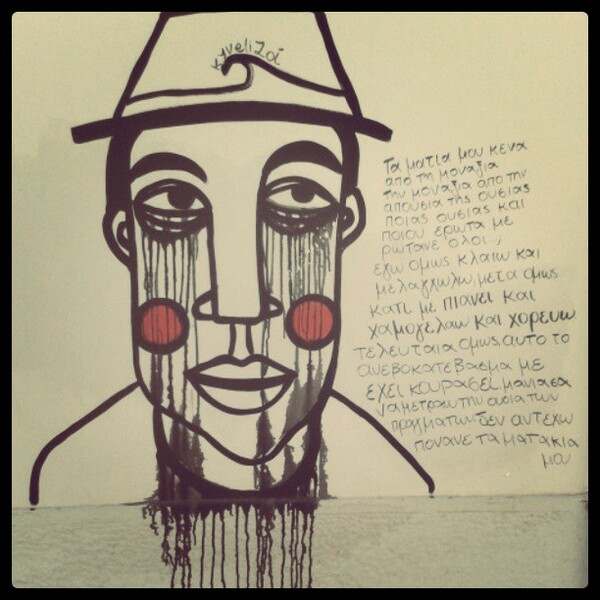 KyveliZoi
Τα ματια μου κενα
απο τη μοναξια
την μοναξια απο την
απουσια της ουσιας
ποιας ουσιας και
ποιου ερωτα με
ρωτανε ολοι..;
εγω ομως κλαιω και
μελαγχωλω, μετα ομως
κατι με πιανει και
χαμογελαω και χορευω
τελευταια ομως, αυτο το
ανεβοκατεβασμα με
εχει κουρασει,
να μετραω την ουσια των
πραγματων. δεν αντεχω
πονανε τα ματακια
μου